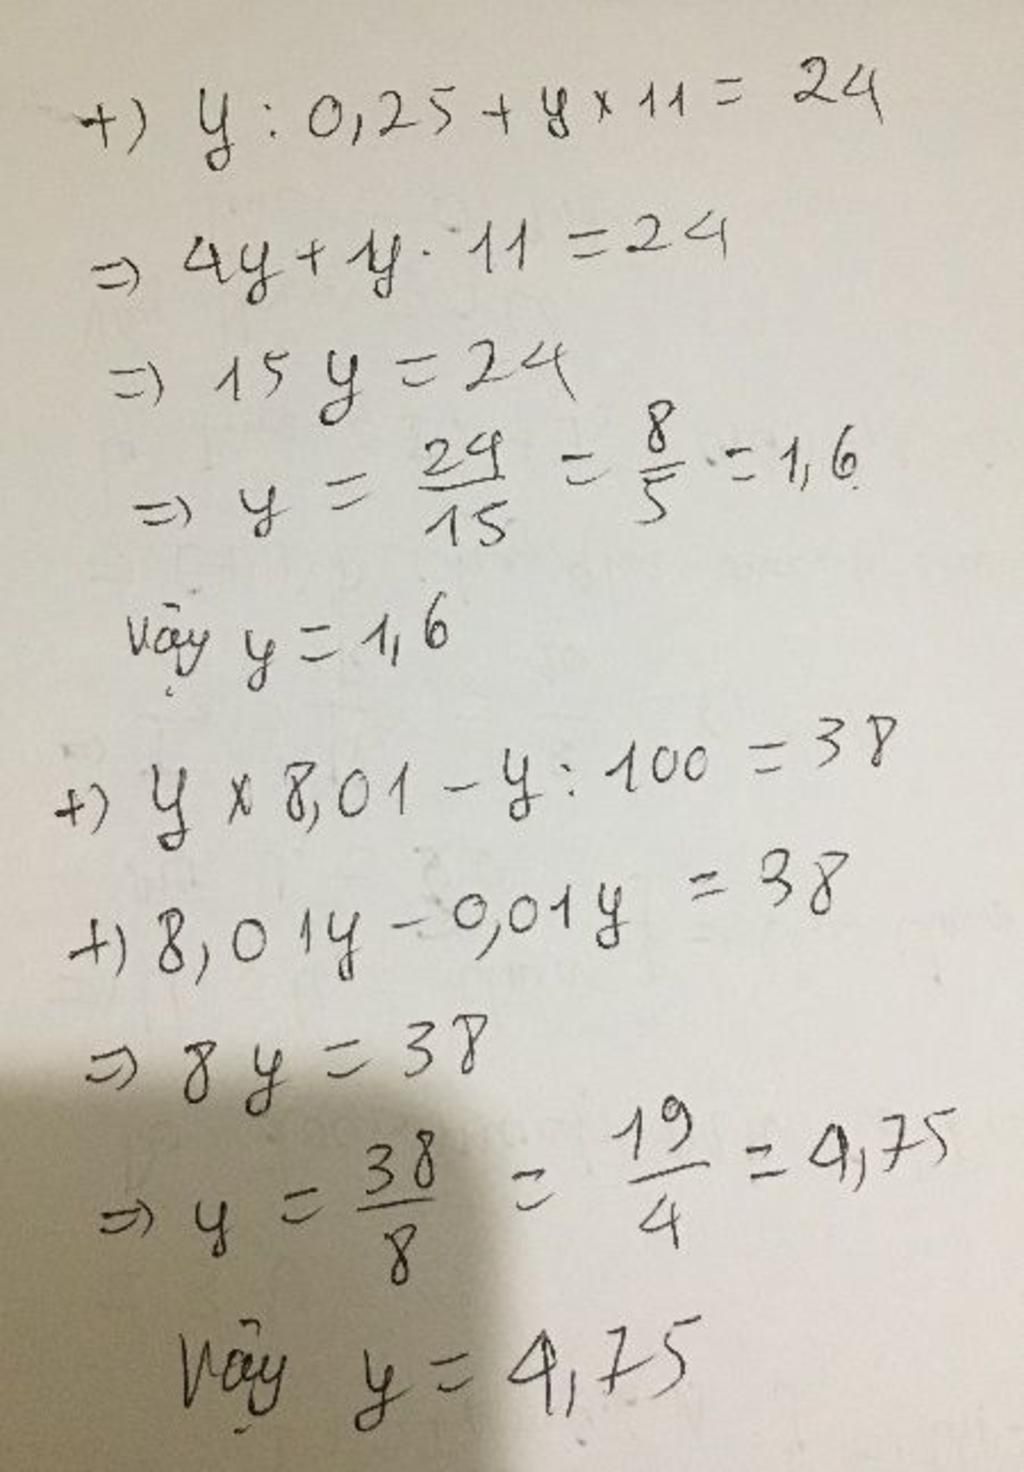 +) y : 0,25 + y x 11 = 24
=) 4y + y . 11 = 24
=) 15 y = 24
=) y = 24/15 = 8/5 = 1,6
Vậy y = 1,6
+) y x 8,01 - y : 100 = 38
+) 8,01y - 0,01y = 38
=) 8y = 38
=) y = 38/8 = 19/4 = 4,75
Vậy y = 4,75